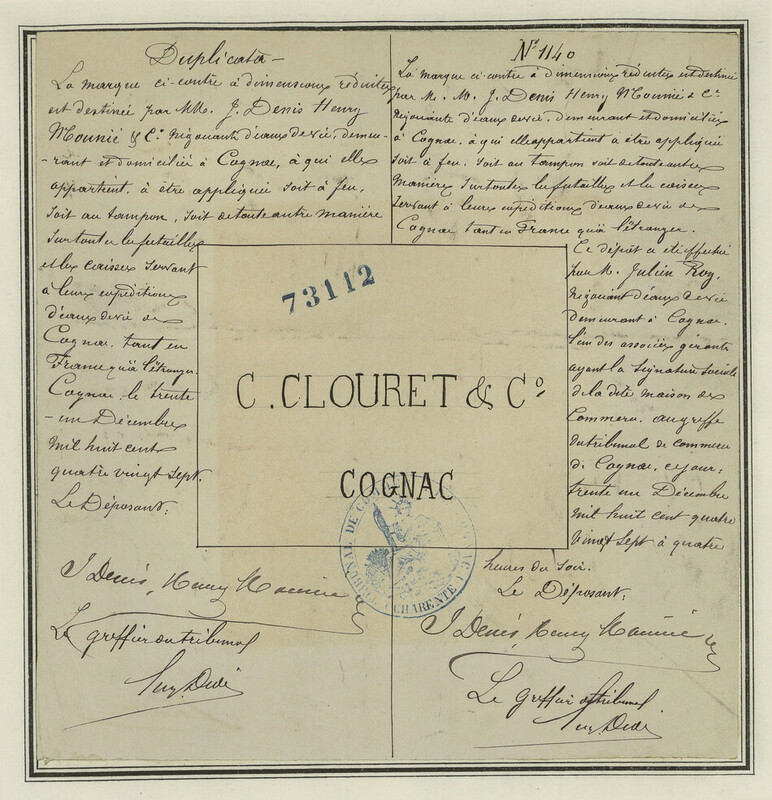 Duplicata
La marque ci-contre à dimensions réduites
est destinée par MM. J. Denis Henry
Mounié & Cº Négociants d'eaux de vie, demeu-
rant et domiciliés à Cognac, à qui elle
appartient, à être appliquée soit à feu,
soit au tampon, soit de toute autre manière
sur toutes les futailles
et les caisses servant
à leurs expéditions
d'eaux de vie de
Cognac, tant en
France qu'à l'étranger.
Cognac, le trente
-un Décembre
mil huit cent
quatre vingt sept.
Le Déposant:
J Denis, Henry Mounié
Le greffier du tribunal
Nº 1140
La marque ci-contre à dimensions réduites est destinée
par M. M. J. Denis Henry Mounié & Cº
Négociants d'eaux de vie, demeurant et domiciliés
à Cognac, à qui elle appartient à être appliquée
soit à feu, soit au tampon soit de toute autre
manière sur toutes les futailles et les caisses
servant à leurs expéditions d'eaux de vie de
Cognac tant en France qu'à l'étranger.
Ce dépôt a été effectué
par M. Julien Roy,
Négociant d'eaux de vie
demeurant à Cognac.
l'un des associés gérants
ayant la signature sociale
de la dite maison de
Commerce, au greffe
du tribunal de commerce
de Cognac, ce jour:
trente un Décembre
mil huit cent quatre
vingt sept à quatre
heures du soir.
Le Déposant:
J Denis, Henry Mounié
Le greffier du tribunal
73112
C. CLOURET & Cº
COGNAC
TRIBUNAL DE COGNAC
CHARENTE